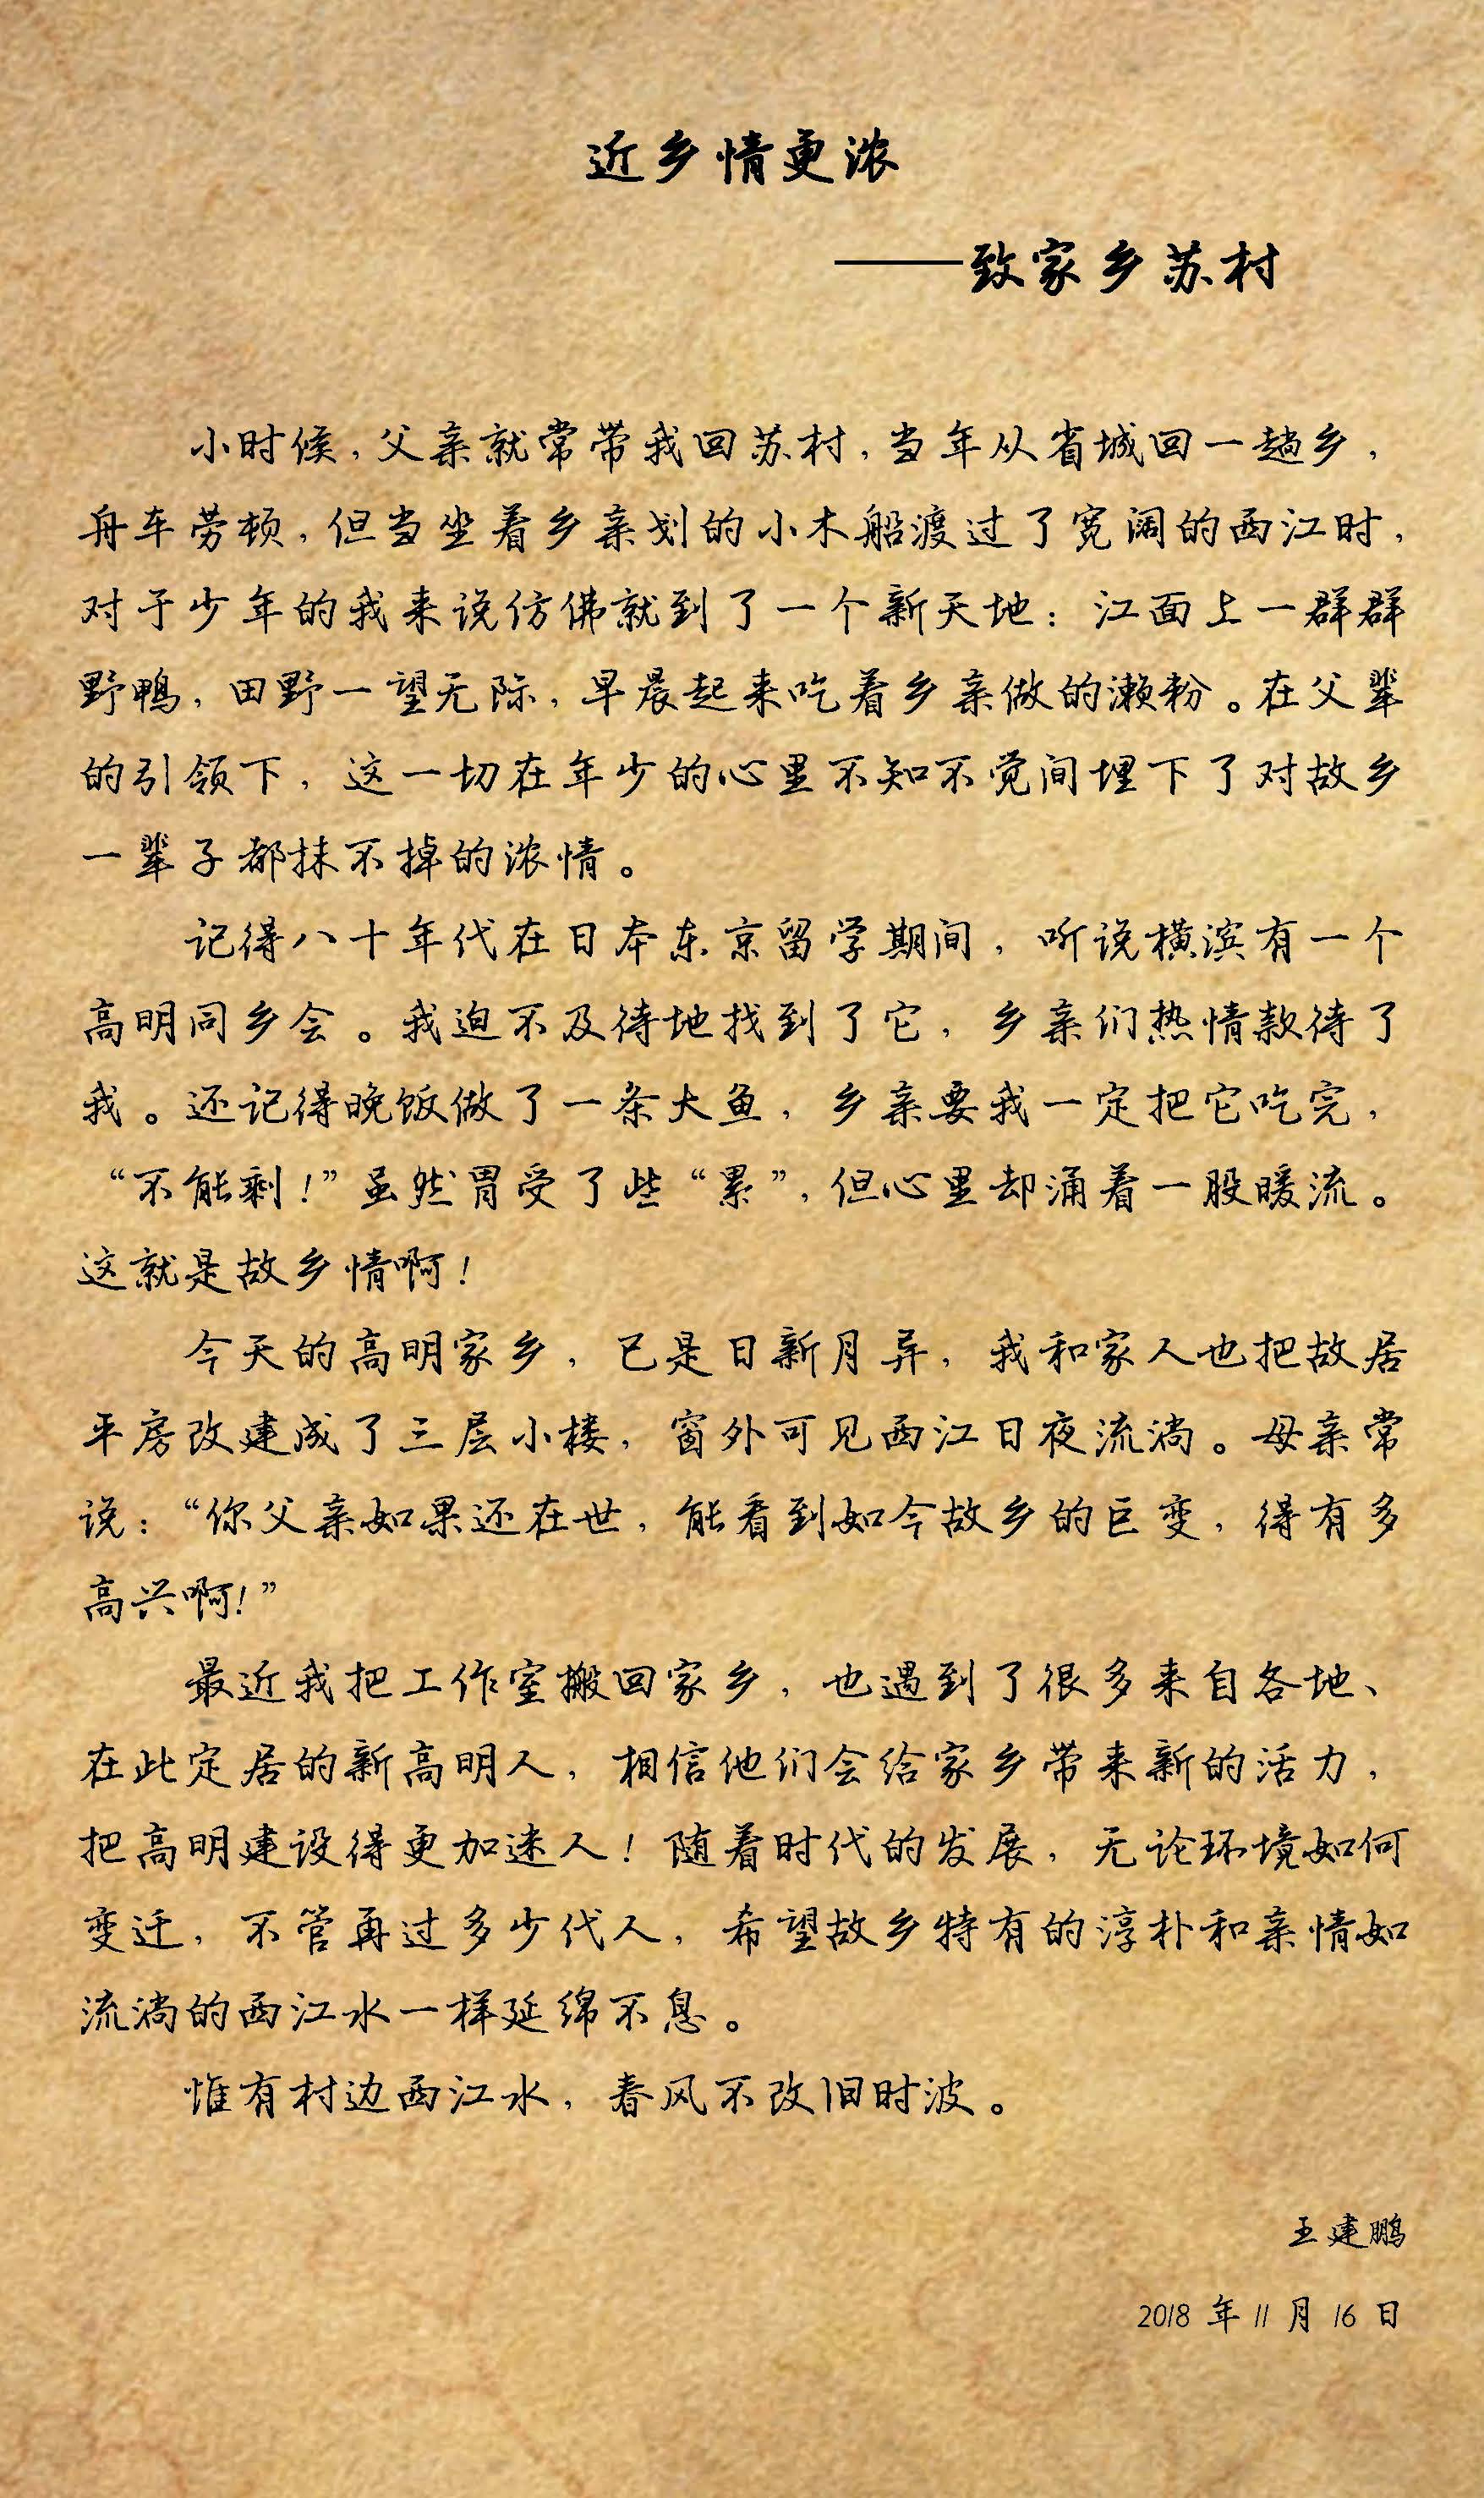 近乡情更浓
——致家乡苏村
小时候，父亲就常带我回苏村，当年从省城回一趟乡，
舟车劳顿，但当坐着乡亲划的小木船渡过了宽阔的西江时，
对于少年的我来说仿佛就到了一个新天地：江面上一群群
野鸭，田野一望无际，早晨起来吃着乡亲做的濑粉。在父辈
的引领下，这一切在年少的心里不知不觉间埋下了对故乡
一辈子都抹不掉的浓情。
记得八十年代在日本东京留学期间，听说横滨有一个
高明同乡会。我迫不及待地找到了它，乡亲们热情款待了
我。还记得晚饭做了一条大鱼，乡亲要我一定把它吃完，
“不能剩！”虽然胃受了些“累”，但心里却涌着一股暖流。
这就是故乡情啊！
今天的高明家乡，已是日新月异，我和家人也把故居
平房改建成了三层小楼，窗外可见西江日夜流淌。母亲常
说：“你父亲如果还在世，能看到如今故乡的巨变，得有多
高兴啊！”
最近我把工作室搬回家乡，也遇到了很多来自各地、
在此定居的新高明人，相信他们会给家乡带来新的活力，
把高明建设得更加迷人！随着时代的发展，无论环境如何
变迁，不管再过多少代人，希望故乡特有的淳朴和亲情如
流淌的西江水一样延绵不息。
惟有村边西江水，春风不改旧时波。
王建鹏
2018 年 11 月 16 日